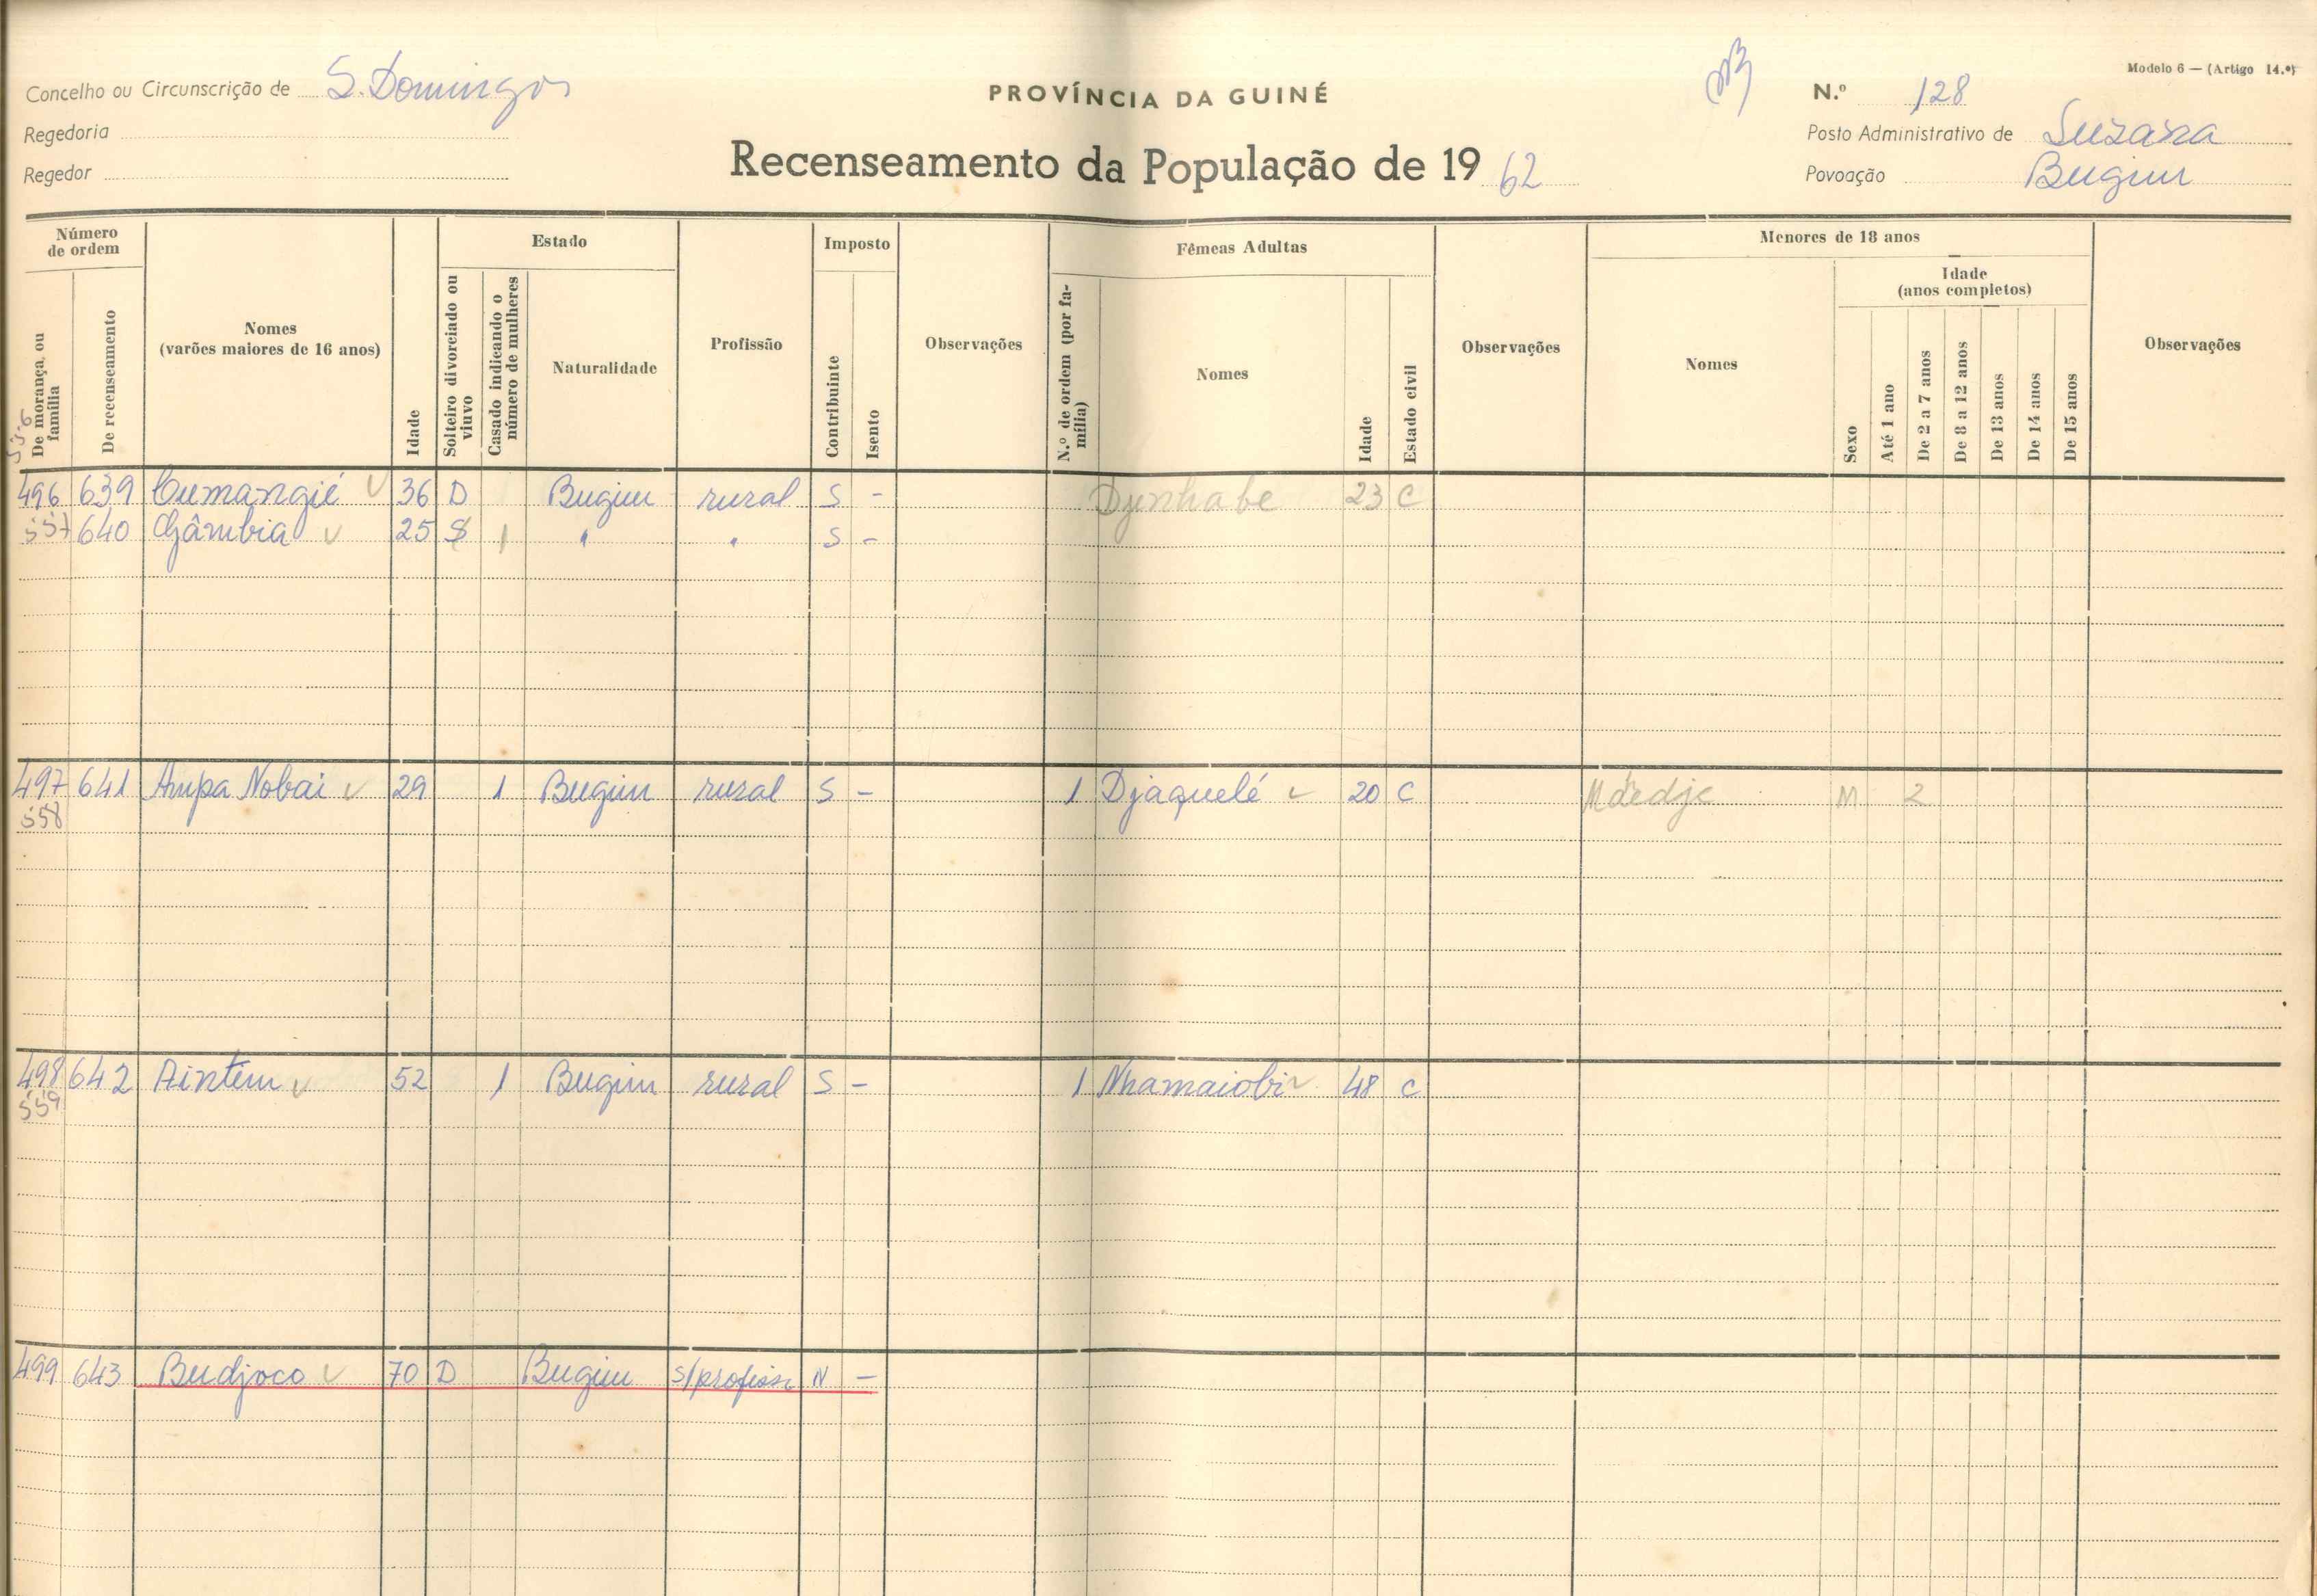 Modelo 6 — (Artigo 14.º)
Concelho ou Circunscrição de S. Domingos
PROVÍNCIA DA GUINÉ
N.º 128
Regedoria
Posto Administrativo de Suzana
Regedor
Recenseamento da População de 1962
Povoação Bugim
Número de ordem
Estado
Imposto
Fêmeas Adultas
Menores de 18 anos
Idade (anos completos)
De morança, ou família
De recenseamento
Nomes (varões maiores de 16 anos)
Idade
Solteiro divorciado ou viuvo
Casado indicando o número de mulheres
Naturalidade
Profissão
Contribuinte
Isento
Observações
N.º de ordem (por família)
Nomes
Idade
Estado civil
Observações
Nomes
Sexo
Até 1 ano
De 2 a 7 anos
De 8 a 12 anos
De 13 anos
De 14 anos
De 15 anos
Observações
556
496 639 Cumangié 36 D Bugim rural S - Djinhabe 23 C
557 640 Gâmbia 25 S 1 " " S -
497 641 Ampa Nobai 29 1 Bugim rural S - 1 Djaquelé 20 C M 2
558
498 642 Aintém 52 1 Bugim rural S - 1 Nhamaiobi 48 C
559
499 643 Budjoco 70 D Bugim s/profiss N -